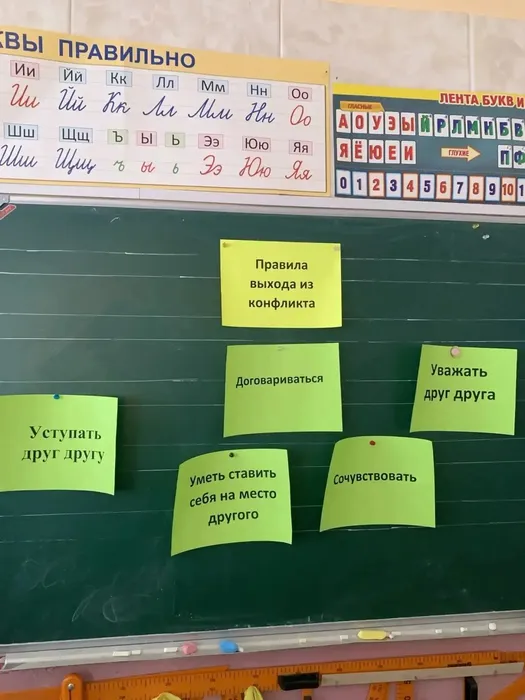 КВЫ ПРАВИЛЬНО
Ии Йй Кк Лл Мм Нн Оо
Ии Йй Кк Лл Мм Нн Оо
Шш Щщ Ъ Ы Ь Ээ Юю Яя
Шш Щщ ъ ы ь Ээ Юю Яя
ЛЕНТА БУКВ И
ГЛАСНЫЕ
А О У Э Ы Й Р Л М Н Б В
Я Ё Ю Е И
ГЛУХИЕ
П Ф
0 1 2 3 4 5 6 7 8 9 10 1
Правила
выхода из
конфликта
Договариваться
Уважать
друг друга
Уступать
друг другу
Уметь ставить
себя на место
другого
Сочувствовать